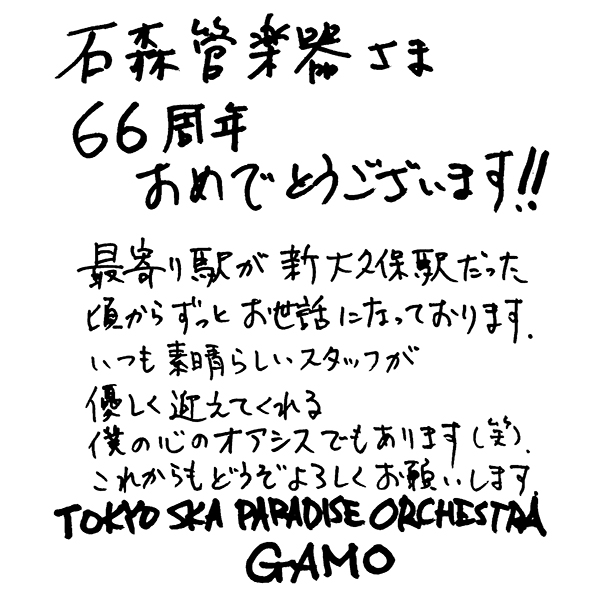 石森管楽器さま
66周年
おめでとうございます!!
最寄り駅が新大久保駅だった
頃からずっとお世話になっております.
いつも素晴らしいスタッフが
優しく迎えてくれる
僕の心のオアシスでもあります(笑).
これからもどうぞよろしくお願いします.
TOKYO SKA PARADISE ORCHESTRA
GAMO